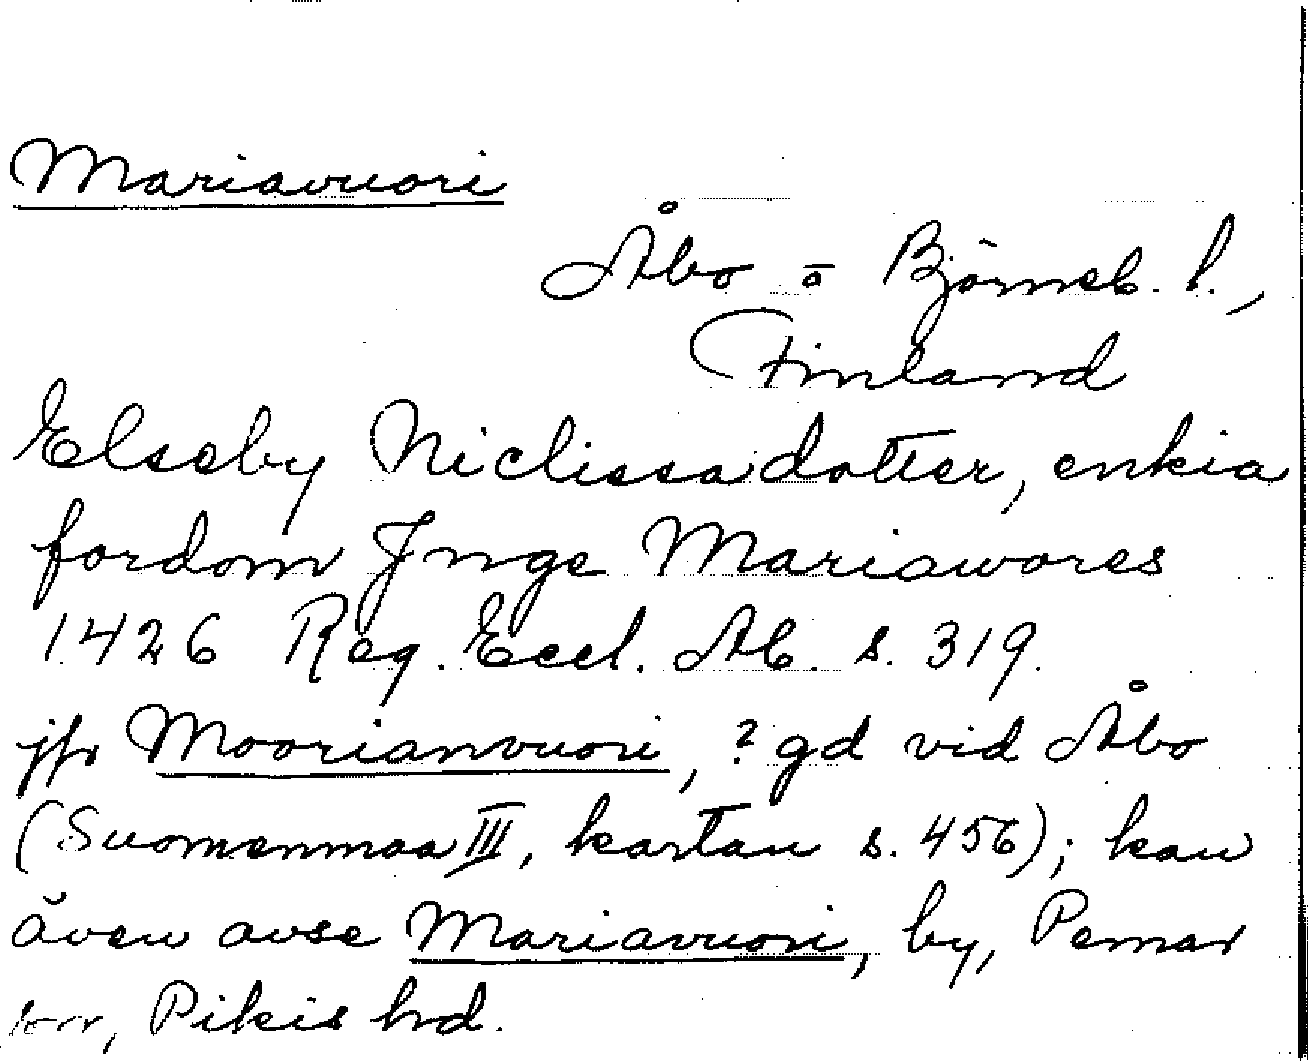 Mariavuori
Åbo o Björneb. l.,
Finland
Elseby Niclissadotter, enkia
fordom Jnge Mariawores
1426 Reg. Eccl. Ab. s. 319.
jfr Moorianvuori, ? gd vid Åbo
(Suomenmaa III, kartan s. 456); kan
även avse Mariavuori, by, Pemar
sn, Pikis hd.